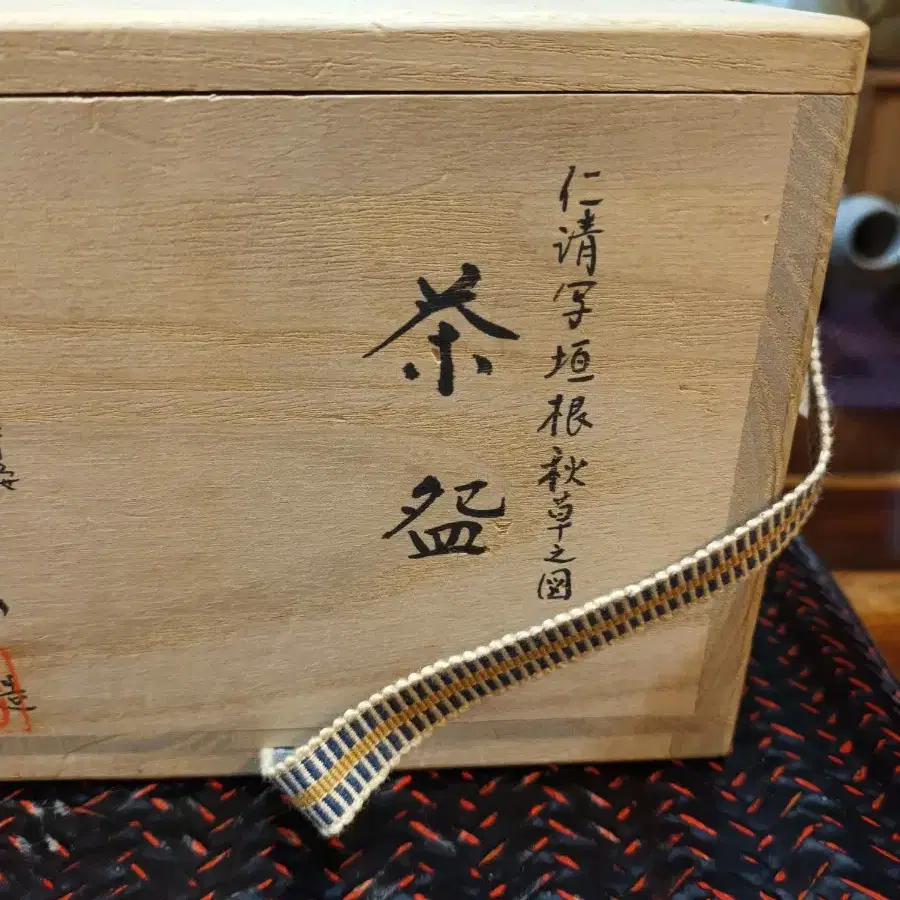 仁清写垣根秋草之図
茶盌
造